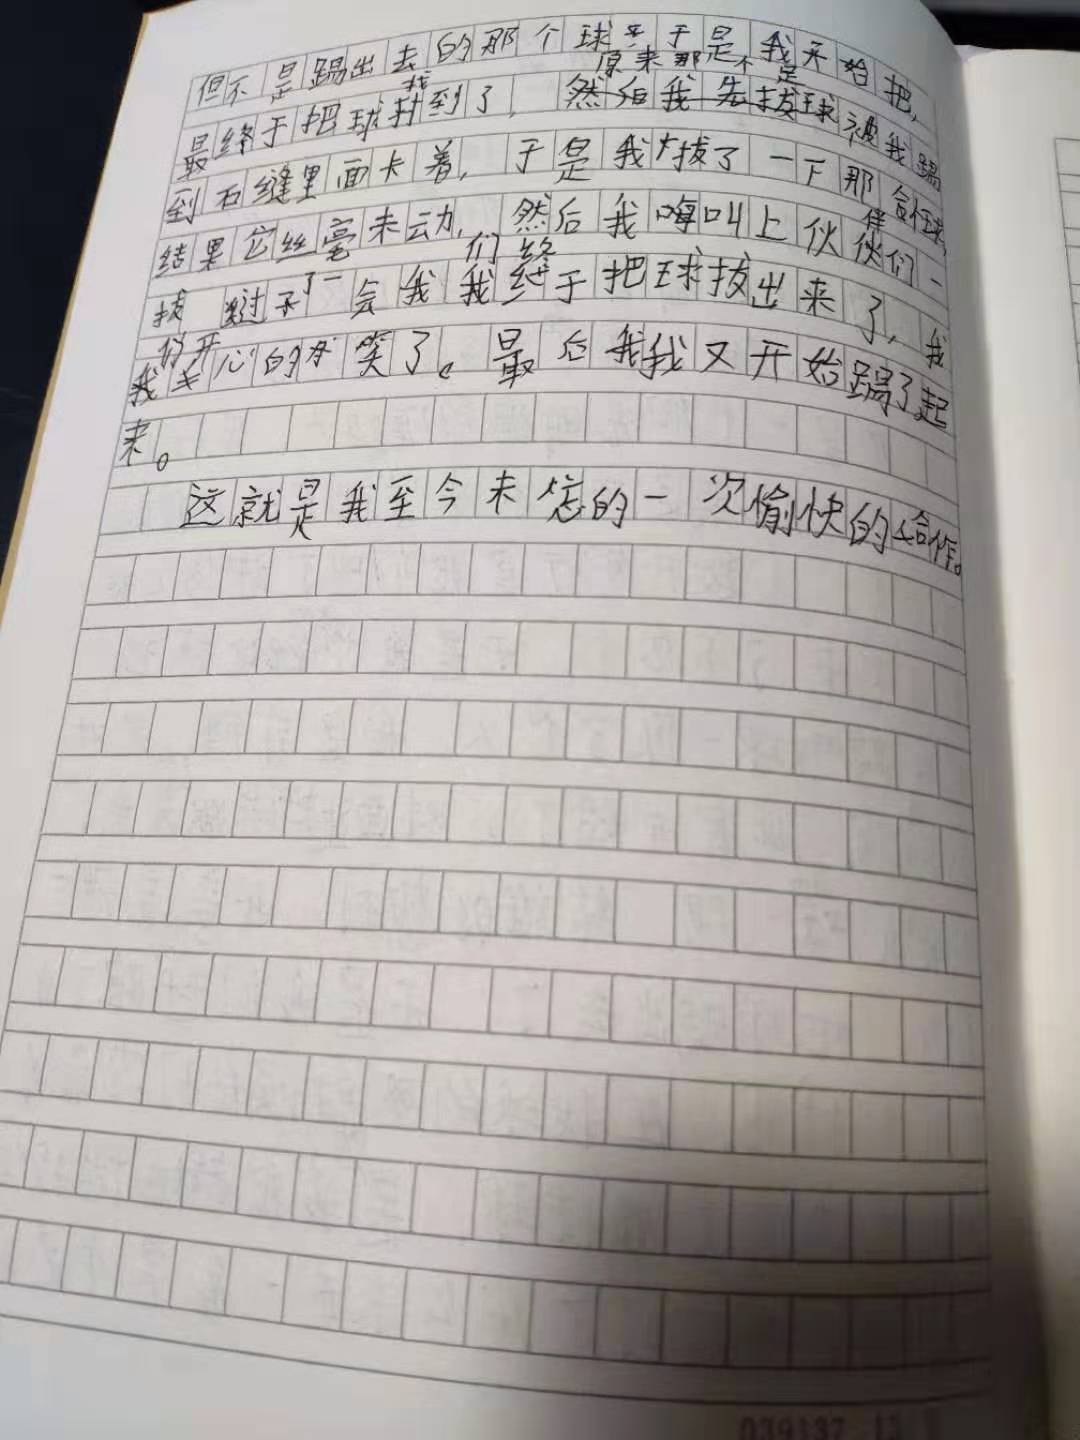 但不是踢出去的那个球于是我开始把,
最终于把球找到了,原来那个足球被我踢
到石缝里面卡着,于是我拔了一下那个球,
结果它丝毫未动,然后我叫上伙伴们一
拔 过了一会我们终于把球拔出来了,我
们开心的笑了。最后我又开始踢了起
来。
这就是我至今未忘的一次愉快的合作。
039137 13